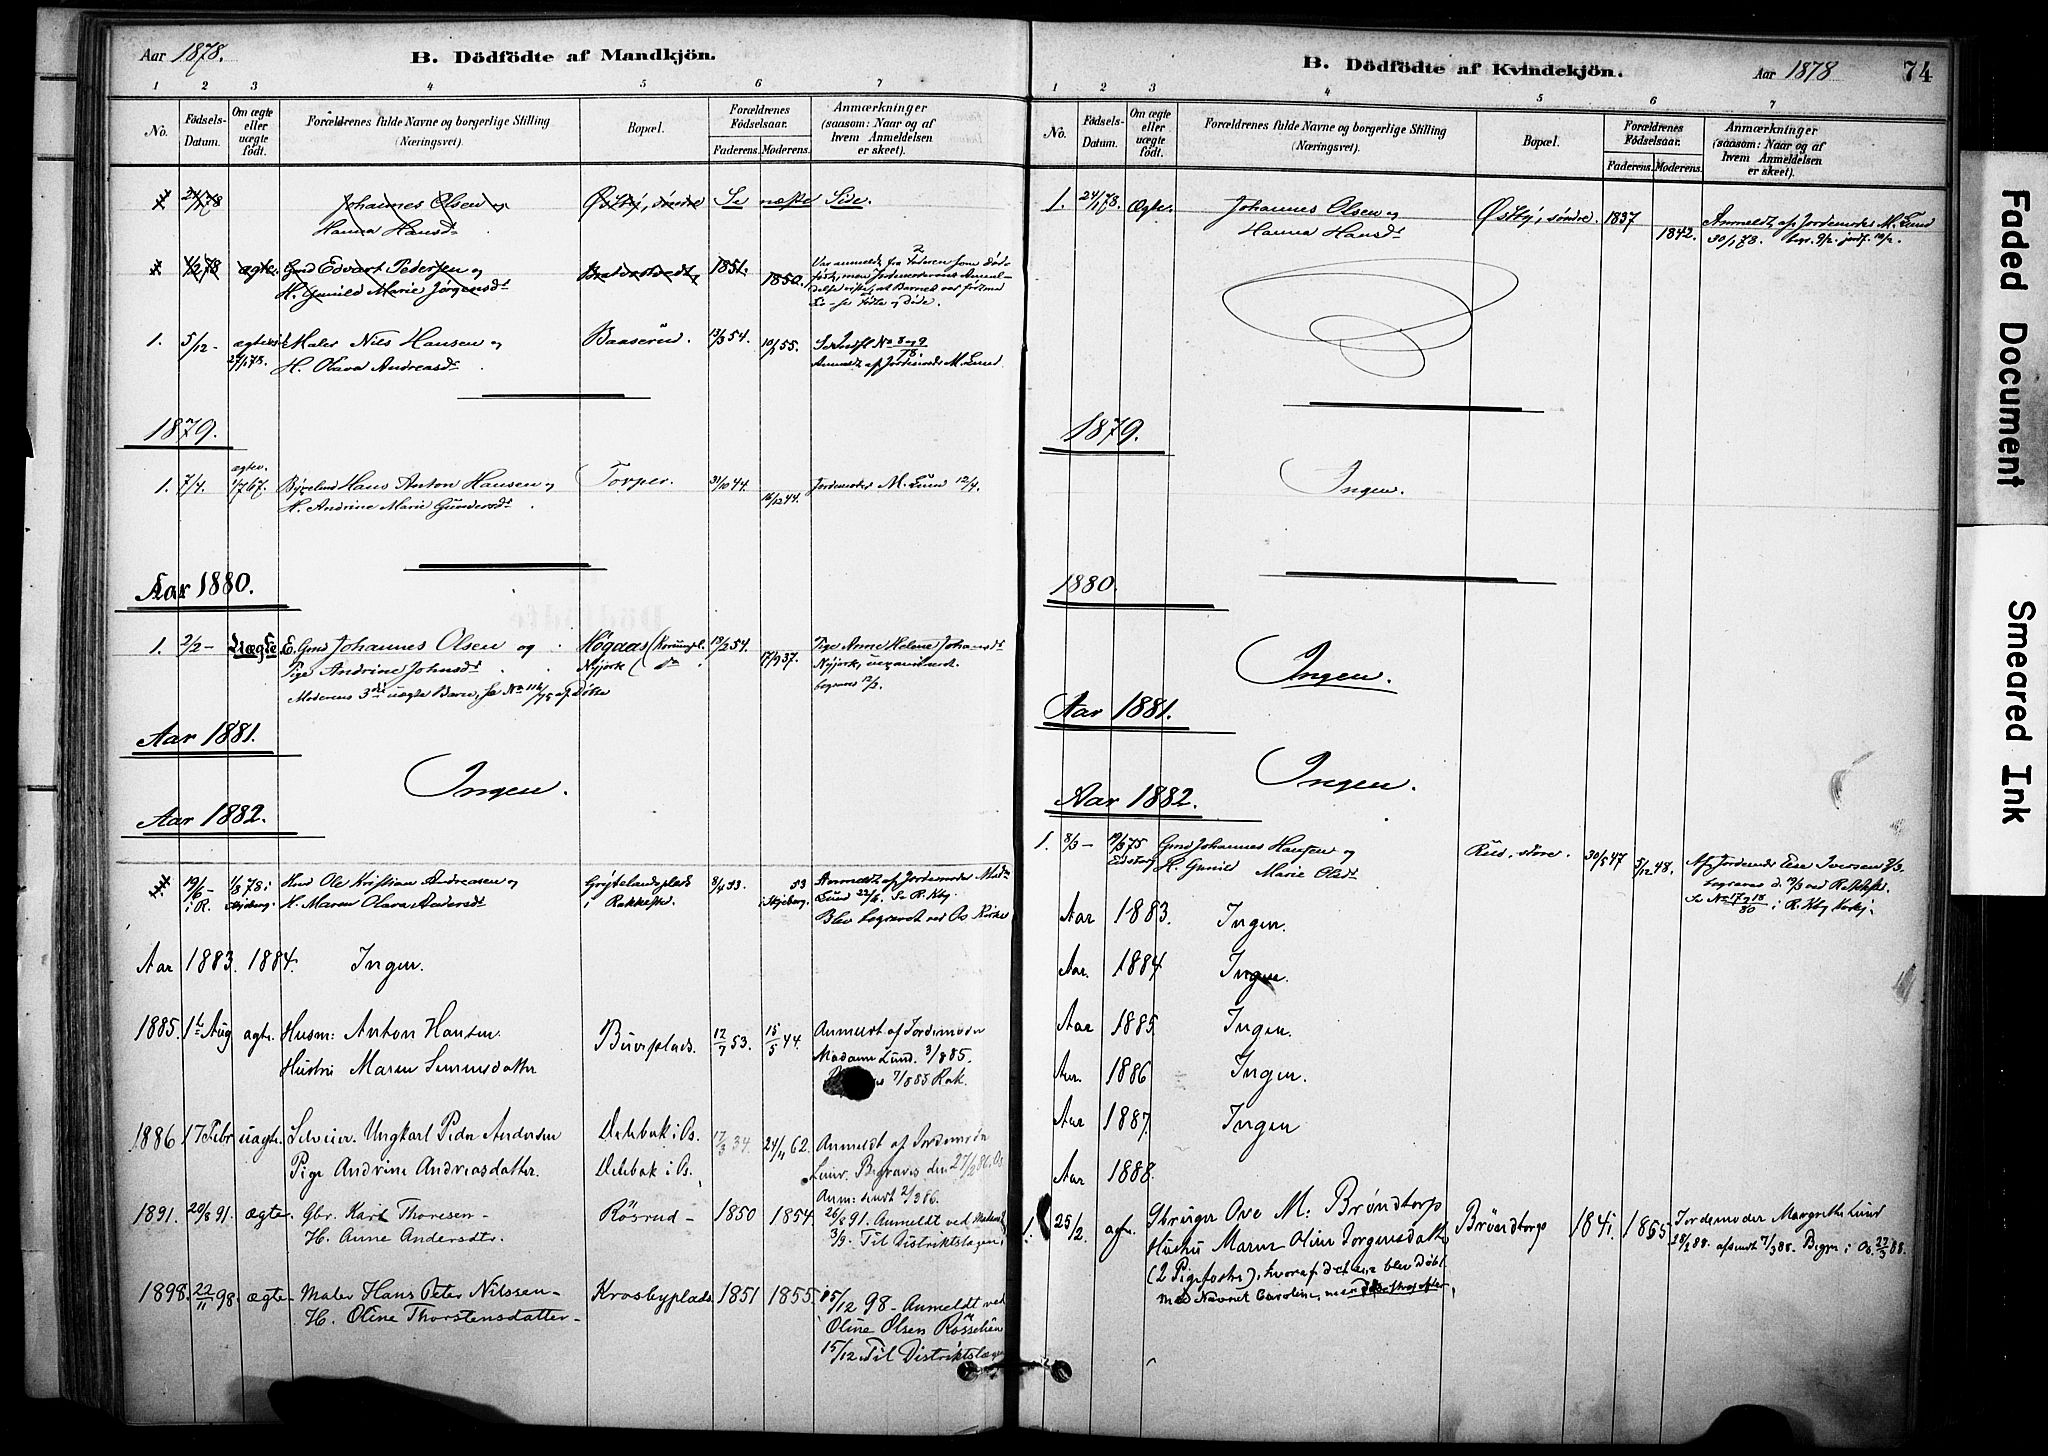 Aar 1878.
B. Dödfödte af Mandkjön.
1 2 3 4 5 6 7
No.
Födsels-
Datum.
Om ægte
eller
uægte
födt.
Forældrenes fulde Navne og borgerlige Stilling
(Næringsvei).
Bopæl.
Forældrenes
Födselsaar.
Faderens. Moderens.
Anmærkninger
(saasom: Naar og af
hvem Anmeldelsen
er skeet).
24/1 78 Johannes Olsen og Østby, søndre Se næste Side.
Hanna Hansdr
1/2 78 ægte. Gmd Edvart Pedersen og 1851. Var anmeldt fra Faderen som død-
H. Gunild Marie Jørgensdr 1850. født, men Jordemoderens Anmel-
delse viste, at Barnet var
Se Fødte og Døde.
1. 5/12 - Maler Nils Hansen og Baaserud. 13/3 54.
27/1 78. H. Olava Andreasdr 10/1 55. Anmeldt af Jordemoder M. Lund
1879.
1. 7/4. 67. Hans Anton Hansen og Torper. 31/10 44. Jordemoder M. Lund 12/4.
H. Andrine Marie Gundersdr 16/12 44.
Aar 1880.
1. 2/2 - Uægte E. Gmd Johannes Olsen og Høgaas 13/2 54. Pige Anne Helene Johansdr
Pige Andrine Johnsdr Nyjork 17/9 37. Nyjork,
Moderens 3die uægte Barn, Se No 116/75 af Døbte begraves 12/2.
Aar 1881.
Ingen.
Aar 1882.
19/6 - 1/3 78 i Ole Kristian Andreasen og Grytelandsplads 8/4 53. 53 Anmeldt af Jordemoder Madm
i R. Skjeberg. H. Maren Olava Andersdr i Rakkestad i Skjeberg. Lund 22/6. Se R. Kbg
Blev begravet ved Os Kirke
Aar 1883. 1884. Ingen.
1885. 1ste Aug ægte. Husm: Anton Hansen Bueplads. 12/7 53. 15/5 44. Anmeldt af Jordemoder
Hustru Maren Simensdatter Madame Lund. 3/8 85.
7/8 85 Rak.
1886 17 Febr uægte. Selveier. Ungkarl Peder Andersen Delebæk i Os. 17/3 34. 24/11 62. Anmeldt af Jordemoder
Pige Andrine Andreasdatter. Delebæk i Os. Lund. Begraves den 27/2 86. Os
Anm: sendt 2/3 86.
1891. 20/8 91. ægte. Gbr. Karl Thoresen - Rösrud - 1850 1854. 26/8 91. Anmeldt ved
H. Anne Andersdtr. 3/9. Til Distriktslægen.
1898. 22/11 98. ægte - Maler Hans Peter Nilssen - Krosbyplads 1851 1855. 05/12 98 - Anmeldt ved
H. Oline Thorstensdatter - Oline Olsen
15/12 Til Distriktslægen
B. Dödfödte af Kvindekjön.
Aar 1878 74
1 2 3 4 5 6 7
No.
Födsels-
Datum.
Om ægte
eller
uægte
födt.
Forældrenes fulde Navne og borgerlige Stilling
(Næringsvei).
Bopæl.
Forældrenes
Födselsaar.
Faderens. Moderens.
Anmærkninger
(saasom: Naar og af
hvem Anmeldelsen
er skeet).
1. 24/1 78. Ægte. Johannes Olsen og Østby, søndre. 1837 Anmeldt af Jordemoder M. Lund
Hanna Hansdr 1842. 30/1 78.
1879.
Ingen.
1880.
Ingen.
Aar 1881.
Ingen.
Aar 1882.
1. 8/3 - 19/3 75 Gmd Johannes Hansen og Rud, store. 30/5 47 5/12 48. Af Jordemoder Else Iversen
Eidsberg H. Gunild Marie Olsdr begraves d. ved Rakkestad
Se No 17 og 18/80 i R. Kbg
Aar 1883. Ingen.
Aar. 1884 Ingen.
Aar 1885. Ingen.
Aar. 1886 Ingen.
Aar 1887. Ingen
Aar 1888.
1. 25/2 ægte. Gbruger Ove M: Brøndtorp Bröndtorp 1841. 1855 Jordemoder Margrethe Lund
Hustru Maren Oline Jorgensdatter 28/2 88. afsendt 7/3 88. Begr. i Os. 88.
(2 Pigefostre), hvoraf det ene blev døbt
med Navnet Caroline, men døde strax efter.
Faded Document
Smeared Ink